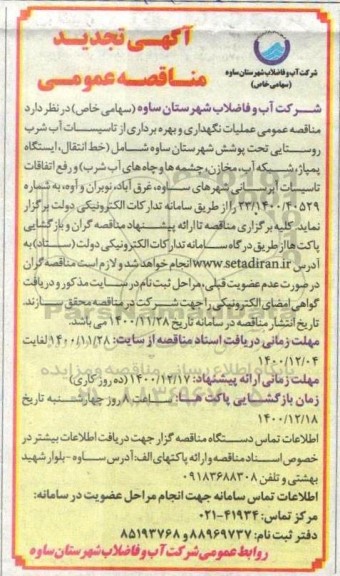 آگهی تجدید
مناقصه عمومی
شرکت آب و فاضلاب شهرستان ساوه
(سهامی خاص)
شرکت آب و فاضلاب شهرستان ساوه (سهامی خاص) در نظر دارد
مناقصه عمومی عملیات نگهداری و بهره برداری از تاسیسات آب شرب
روستایی تحت پوشش شهرستان ساوه شامل (خط انتقال، ایستگاه
پمپاژ، شبکه آب، مخازن، چشمه ها و چاه های آب شرب) و رفع اتفاقات
تاسیسات آبرسانی شهرهای ساوه، غرق آباد، نوبران و آوه، به شماره
۲۳/۱۴۰۰/۴۰۵۲۹ را از طریق سامانه تدارکات الکترونیکی دولت برگزار
نماید. کلیه برگزاری مناقصه تا ارائه پیشنهاد مناقصه گران و بازگشایی
پاکت ها از طریق درگاه سامانه تدارکات الکترونیکی دولت (ستاد) به
آدرس www.setadiran.ir انجام خواهد شد و لازم است مناقصه گران
در صورت عدم عضویت قبلی، مراحل ثبت نام در سایت مذکور و دریافت
گواهی امضای الکترونیکی را جهت شرکت در مناقصه محقق سازند.
تاریخ انتشار مناقصه در سامانه تاریخ ۱۴۰۰/۱۱/۲۸ می باشد.
مهلت زمانی دریافت اسناد مناقصه از سایت: ۱۴۰۰/۱۱/۲۸ لغایت
۱۴۰۰/۱۲/۰۴
مهلت زمانی ارائه پیشنهاد: ۱۴۰۰/۱۲/۱۷ (ده روز کاری)
زمان بازگشایی پاکت ها: ساعت ۸ روز چهارشنبه تاریخ
۱۴۰۰/۱۲/۱۸
اطلاعات تماس دستگاه مناقصه گزار جهت دریافت اطلاعات بیشتر در
خصوص اسناد مناقصه و ارائه پاکتهای الف: آدرس ساوه - بلوار شهید
بهشتی و تلفن ۰۹۱۸۳۶۸۸۳۰۸
اطلاعات تماس سامانه جهت انجام مراحل عضویت در سامانه:
مرکز تماس: ۴۱۹۳۴-۰۲۱
دفتر ثبت نام: ۸۸۹۶۹۷۳۷ و ۸۵۱۹۳۷۶۸
روابط عمومی شرکت آب و فاضلاب شهرستان ساوه